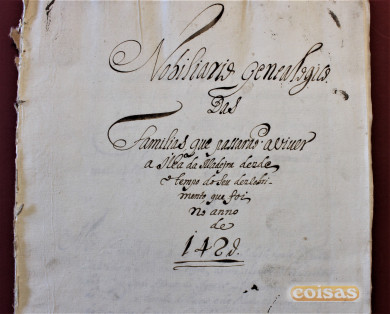 Nobiliario Genealogico
Das
Familias que passarão a viver
a Ilha da Madeyra desde
o tempo do seu descobri-
mento que foi
no anno
de
1420.
coisas